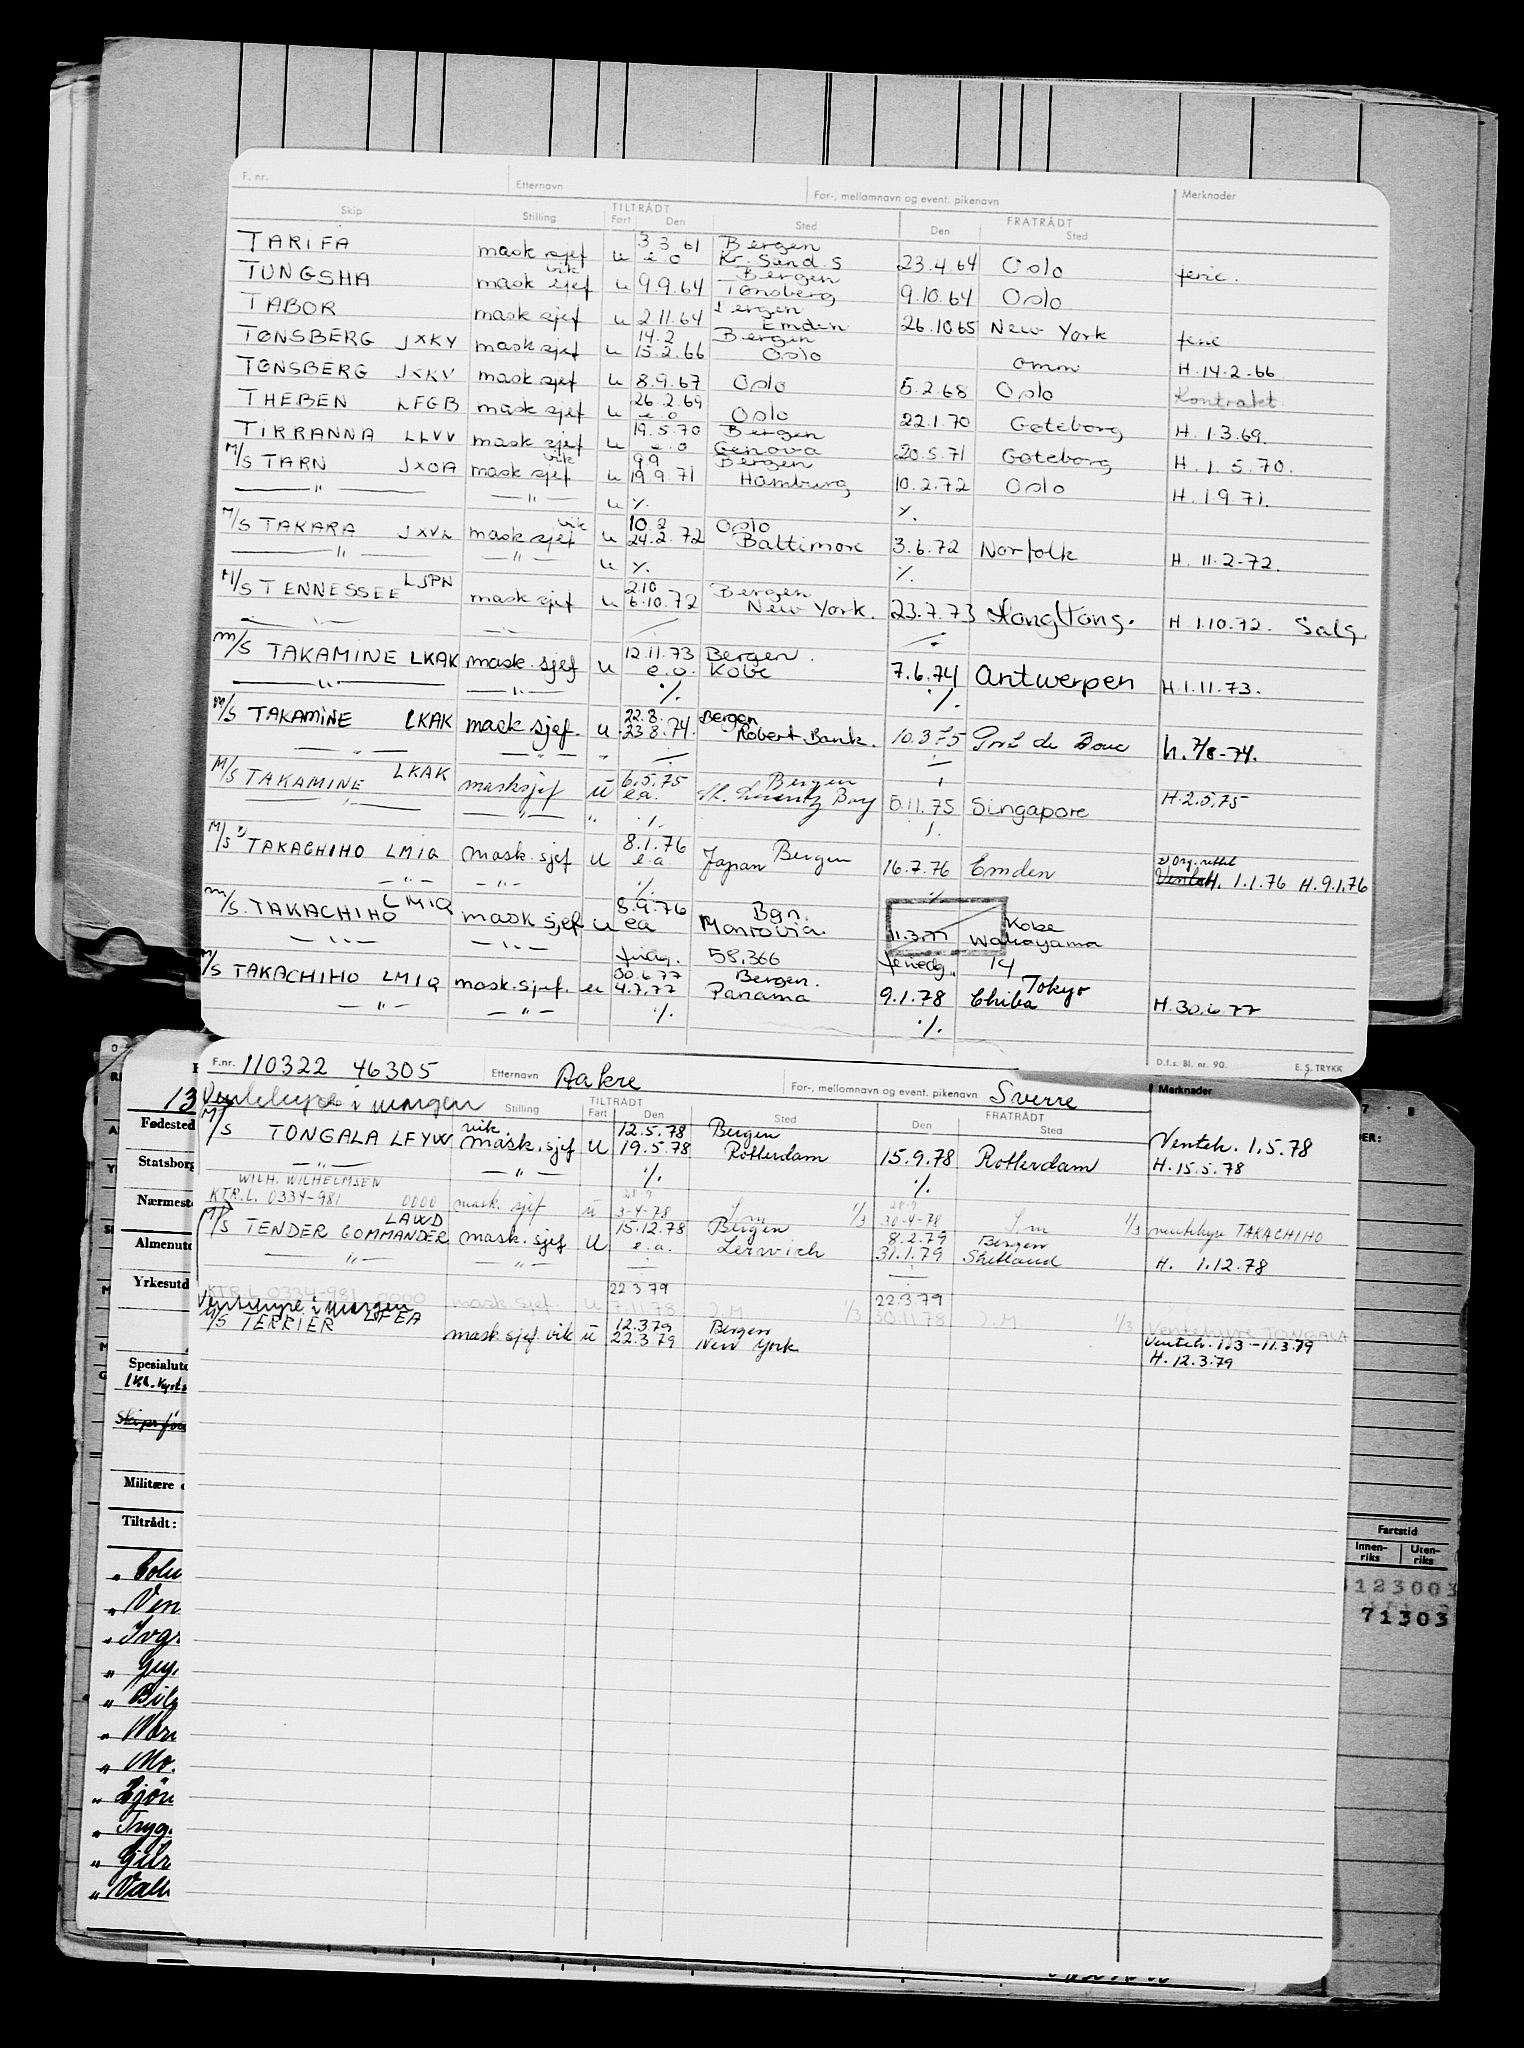 F. nr. Etternavn For-, mellomnavn og event. pikenavn Merknader
Skip Stilling TILTRÅDT Fart Den Sted Den FRATRÅDT Sted
TARIFA mask sjef u 3.3.61 e.o Bergen Kr. Sand. S 23.4.64 Oslo ferie.
TUNGSHA mask sjef vik u 9.9.64 Bergen Tønsberg 9.10.64 Oslo
TABOR mask sjef u 2.11.64 Bergen Emden 26.10.65 New York ferie
TØNSBERG JXKY mask sjef u 14.2 15.2.66 Bergen Oslo omm H. 14-2-66
TØNSBERG JXKV mask sjef u 8.9.67 Oslo 5.2.68 Oslo Kontrakt.
THEBEN LFGB mask sjef u 26.2.69 e.o Oslo 22.1.70 Gøteborg H. 1.3.69.
TIRRANNA LLVV mask sjef u 19.5.70 e.o Bergen Genova 20.5.71 Gøteborg H. 1. 5.70.
M/S TARN JXOA mask sjef vik u 9.9 19.9.71 Bergen Hamburg 10.2.72 Oslo H. 1.9.71.
—"— —"— u ٪. ٪.
M/S TAKARA JXVL mask sjef vik u 10.2 24.2.72 Oslo Baltimore 3.6.72 Norfolk H. 11.2-72.
—"— —"— u ٪. ٪.
M/S TENNESSEE LJPN mask sjef u 2.10 6.10.72 Bergen New York. 23.7.73 HongKong. H 1.10.72. Salg
—"— —"—
M/S TAKAMINE LKAK mask. sjef u 12.11.73 e.o. Bergen. Kobe 7.6.74 Antwerpen H.1.11.73.
—"— —"— ٪. ٪.
M/S TAKAMINE LKAK mask sjef. u 22.8. 23.8.74. Bergen Robert Bank. 10.3.75 Port de Bouc h. 7/8-74.
—"— —"— "
M/S TAKAMINE LKAK masksjef u 6.5.75 e.a. Bergen Bay 5.11.75 Singapore H.2.5.75
—"— —"— " ٪. ٪.
M/S TAKACHIHO LMIQ mask. sjef u 8.1.76 e.a. Japan Bergen 16.7.76 Emden Org. rettet H. 1.1.76 H. 9.1.76
—"— —"— ٪. ٪.
M/S. TAKACHIHO LMIQ mask sjef u 8.9.76 ea Bgn. Monrovia. 11.3.77 Kobe Wakayama
—"— —"— 58,366 feriedg. 14
M/S TAKACHIHO LMIQ mask. sjef. u 30.6.77 4.7.77 Bergen. Panama 9.1.78 Tokyo Chiba H.30.6.77
—"— —"— ٪. ٪.
D.f.s. Bl. nr. 90. E. S. TRYKK
F.nr. 110322 46305 Etternavn Aakre For-, mellomnavn og event. pikenavn Sverre Merknader
Ventehyre i margen Stilling TILTRÅDT Fart Den Sted Den FRATRÅDT Sted
M/S TONGALA LFYW vik. mask. sjef u 12.5.78 19.5.78 Bergen Rotterdam 15.9.78 Rotterdam Venteh. 1.5.78 H.15.5.78
—"— —"— ٪. ٪.
WILH. WILHELMSEN
KTR.L. 0334-981 0000 mask. sjef u 3-4-78 I m 1/3 30-4-78 I m 1/3 ventehyre TAKACHIHO
M/S TENDER COMMANDER LAWD mask. sjef u 15.12.78 e.a. Bergen Lerwich 8.2.79 31.1.79 Bergen Shetland H. 1.12.78
—"— —"—
22.3.79 22.3.79
KTR.L 0334-981 0000 mask. sjef u 7.11.78 I.M 1/3 30.11.78 I.M 1/3 Ventehyre TONGALA
Ventehyre i margen
M/S TERRIER LFEA mask. sjef vik u 12.3.79 22.3.79 Bergen New York Venteh. 1.3-11.3.79 H. 12.3.79
13
Fødested
Statsborg
Nærmest
Almenutd
Yrkesutd
Spesialutd
Militære
Tiltrådt:
Fartstid
Innen-riks Uten-riks
123003
71303